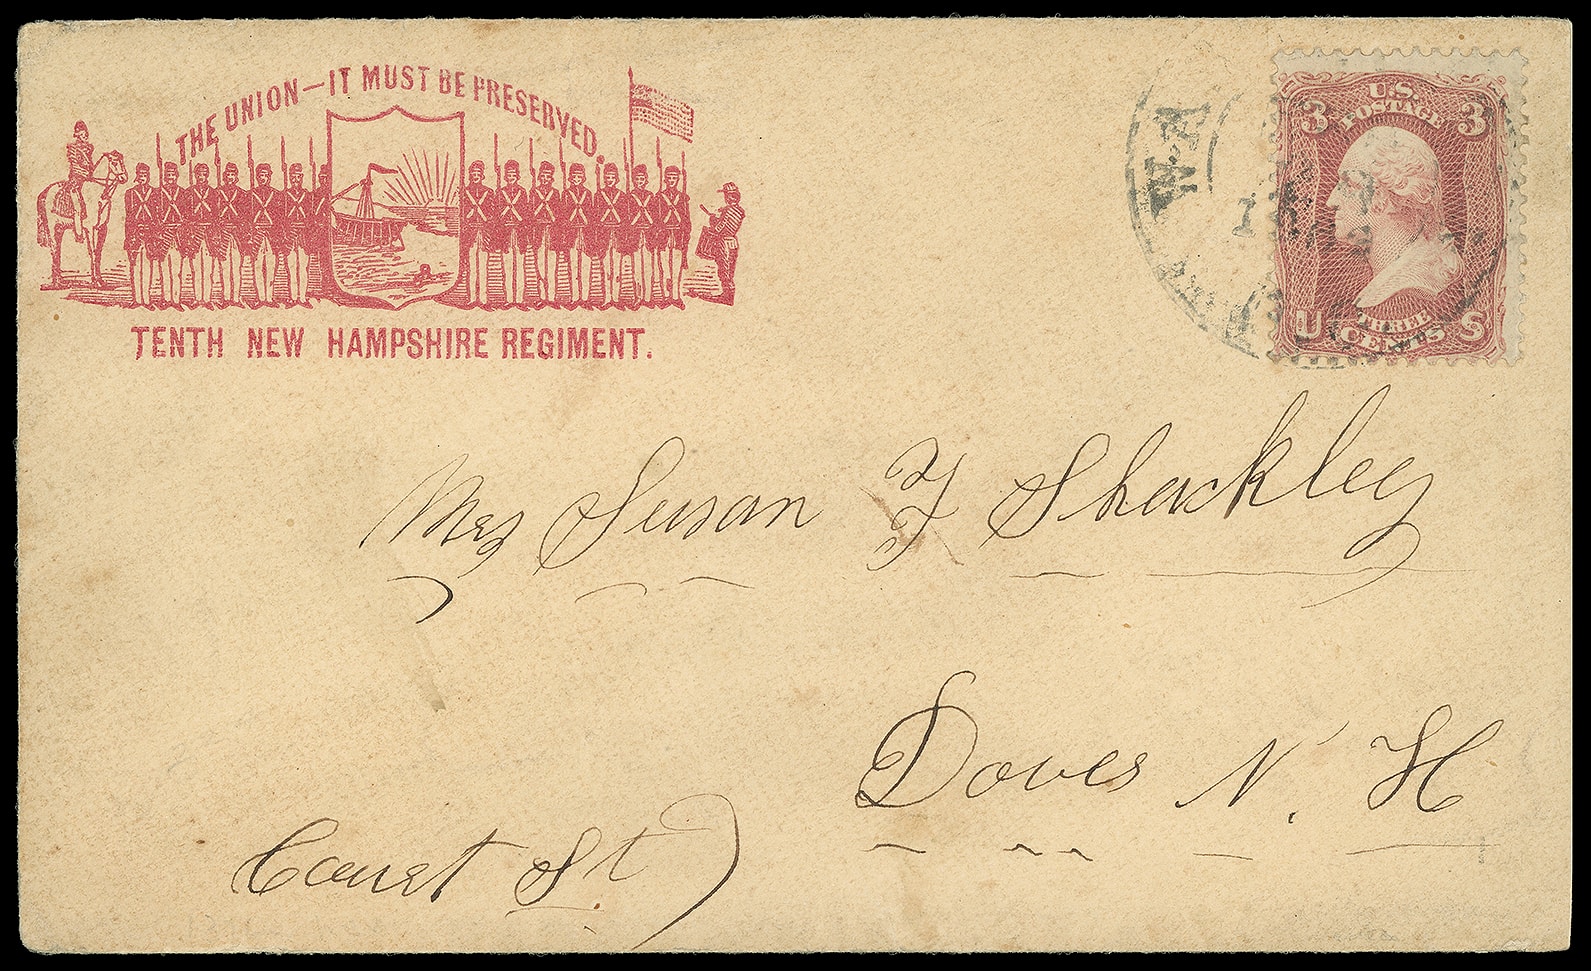 THE UNION — IT MUST BE PRESERVED.
TENTH NEW HAMPSHIRE REGIMENT.
WA
U.S.
POSTAGE
3 3
THREE
U CENTS S
Mrs Susan F Shackley
Dover N. H
Court St